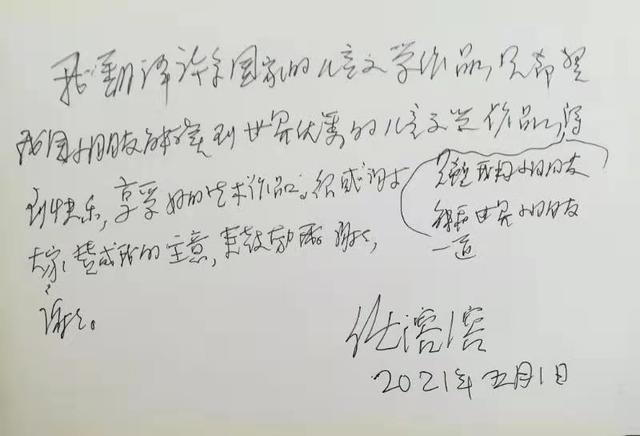 我翻译许多国家的儿童文学作品，只希望
我国小朋友能读到世界优秀的儿童文学作品，得
到快乐，享受好的艺术作品。很感谢
大家赞成我的主意，更鼓励我。谢谢，
谢谢。
只想我们小朋友
能和世界小朋友
一道
任溶溶
2021年五月1日